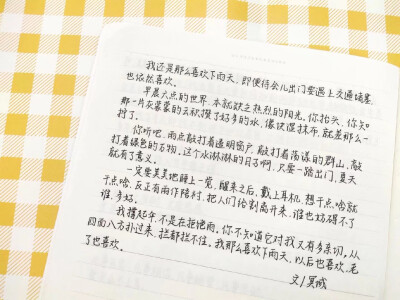 我还是那么喜欢下雨天,即使待会儿出门要遇上交通堵塞
也依然喜欢.
早晨六点的世界,本就缺乏热烈的阳光,你抬头,你知
那一片灰蒙蒙的云积攒了好多的水,像块湿抹布,就差那么一
拧了.
你听吧,雨点敲打着透明窗户,敲打着荡漾的群山,敲
打着绿色的万物,这个水淋淋的日子啊,只要一踏出门,夏天
就有了意义.
一定要美美地睡上一觉,醒来之后,戴上耳机,想干点啥就
干点啥,反正有雨作陪衬,把人们给割离开来,谁也妨碍不了
谁,多好.
我撑起伞,不是在拒绝雨,你不知道它对我又有多亲切,从
四面八方扑过来,拦都拦不住,我那么喜欢下雨天,以后也喜欢,老
了也喜欢.
文/昊